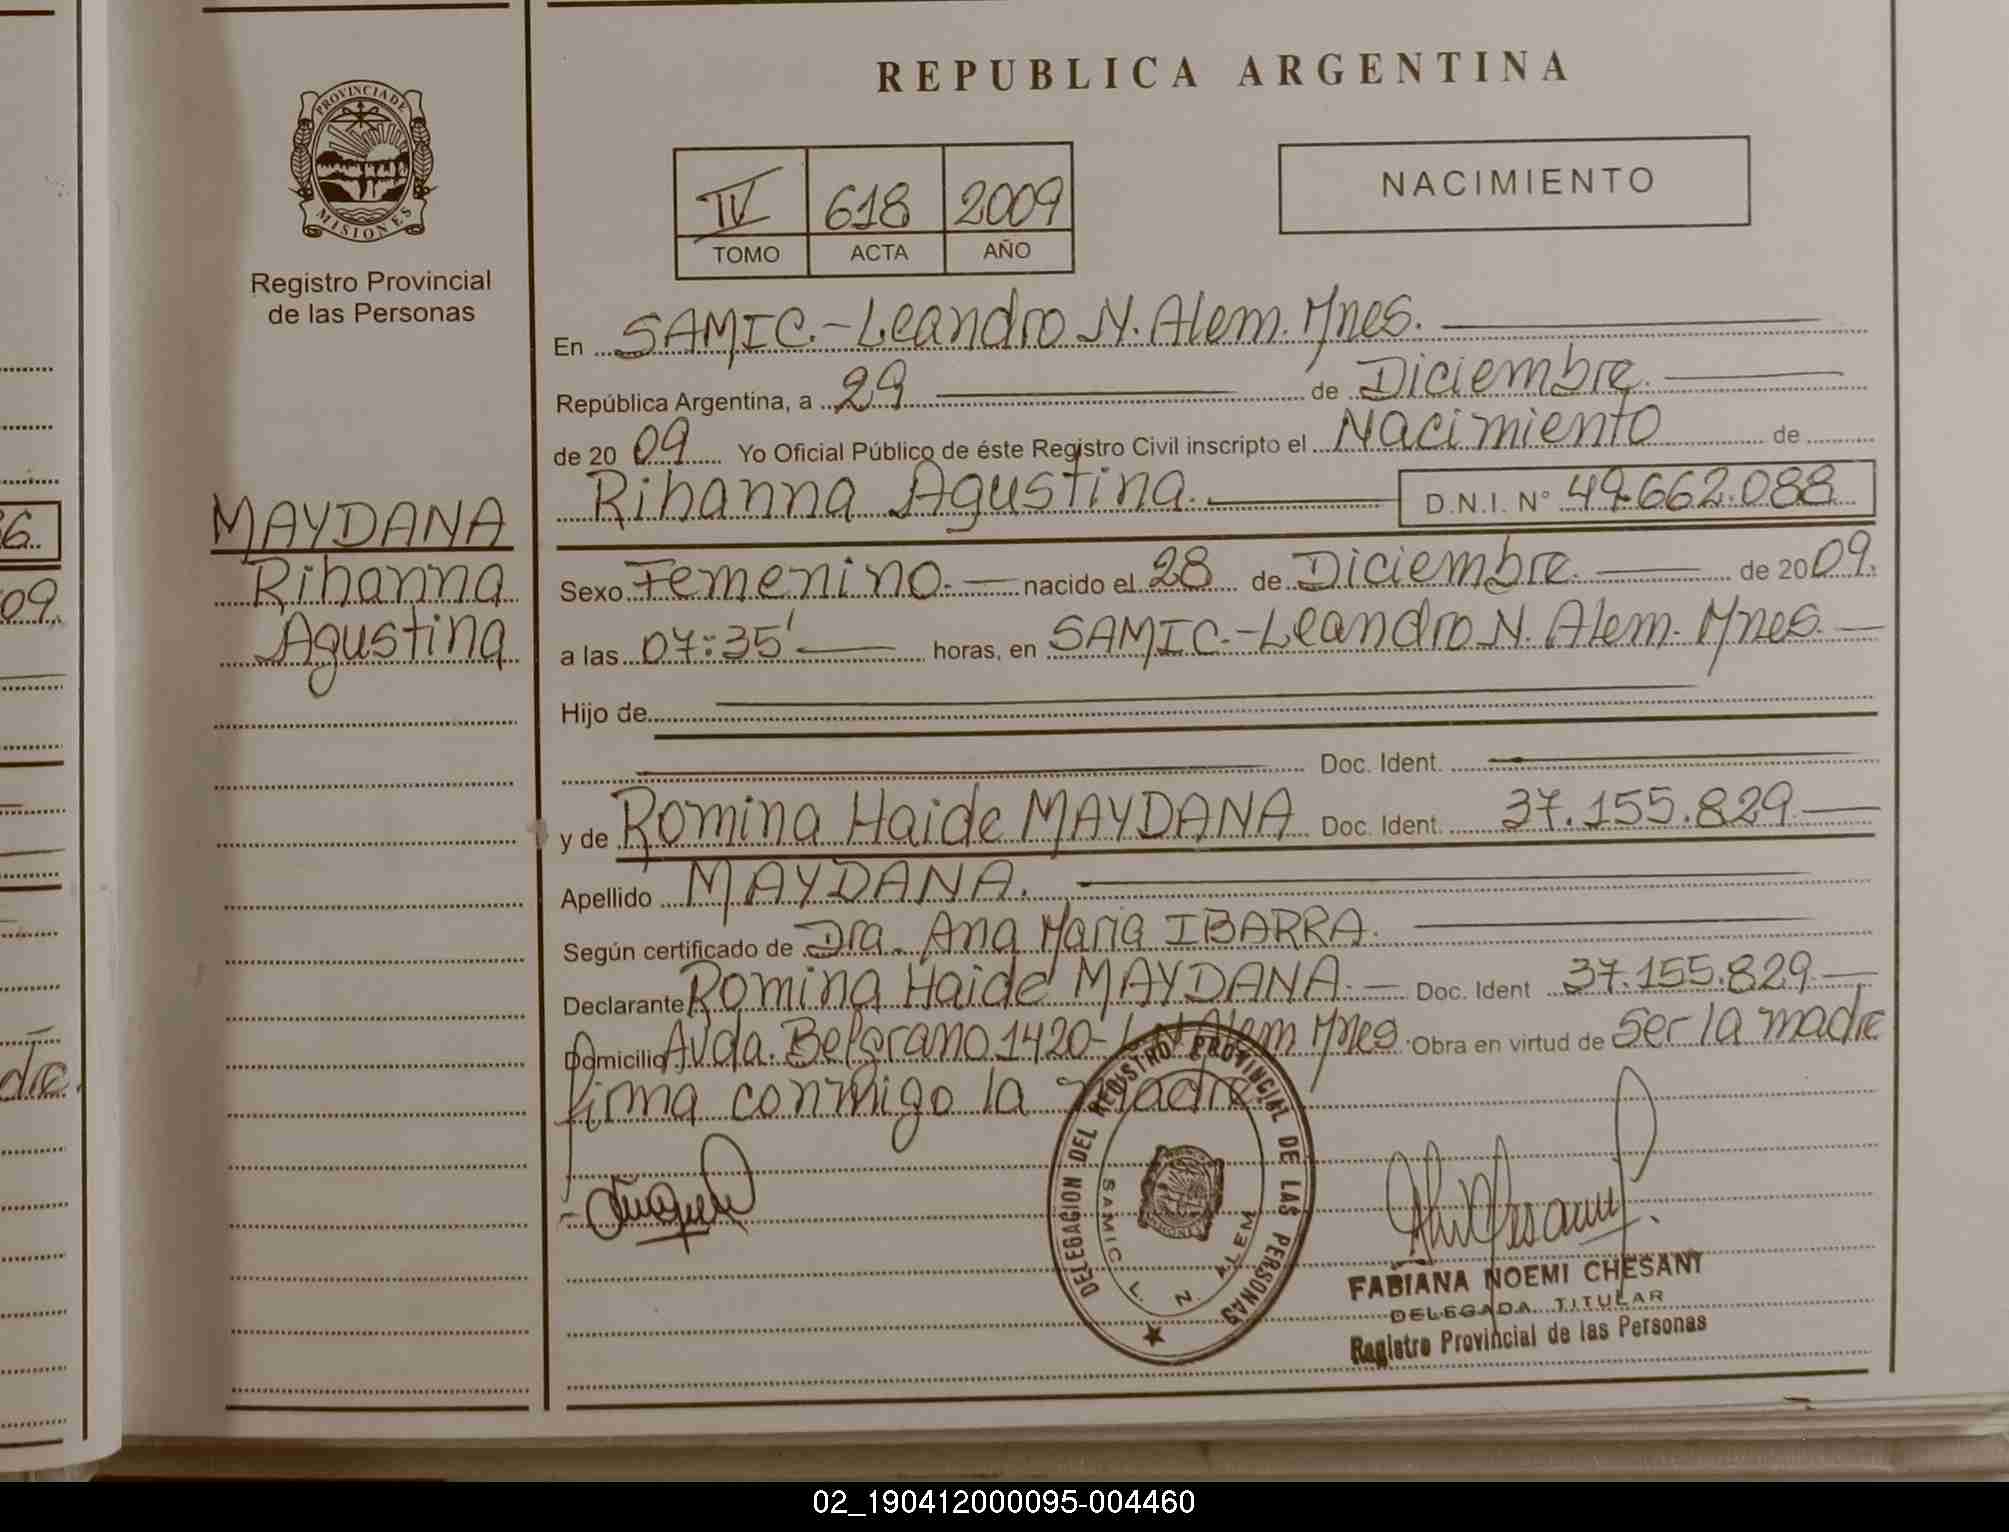 REPUBLICA ARGENTINA
PROVINCIA DE
MISIONES
Registro Provincial
de las Personas
IV 618 2009
TOMO ACTA AÑO
NACIMIENTO
En SAMIC.-Leandro N. Alem. Mnes.
República Argentina, a 29 de Diciembre.
de 20 09 Yo Oficial Público de éste Registro Civil inscripto el Nacimiento de
Rihanna Agustina. D.N.I. N° 49.662.088
MAYDANA
Rihanna
Agustina
Sexo Femenino. nacido el 28 de Diciembre. de 20 09.
a las 07:35' horas, en SAMIC.-Leandro N. Alem. Mnes.
Hijo de
Doc. Ident.
y de Romina Haide MAYDANA Doc. Ident. 37.155.829
Apellido MAYDANA.
Según certificado de Dra. Ana Maria IBARRA.
Declarante Romina Haide MAYDANA. Doc. Ident 37.155.829
Domicilio Avda. Belgrano 1420- L.N Alem Mnes. Obra en virtud de Ser la madre
firma conmigo la madre
DELEGACION DEL REGISTRO PROVINCIAL DE LAS PERSONAS
SAMIC L. N. ALEM
FABIANA NOEMI CHESANY
DELEGADA TITULAR
Registro Provincial de las Personas
6.
09.
dre.
02_190412000095-004460